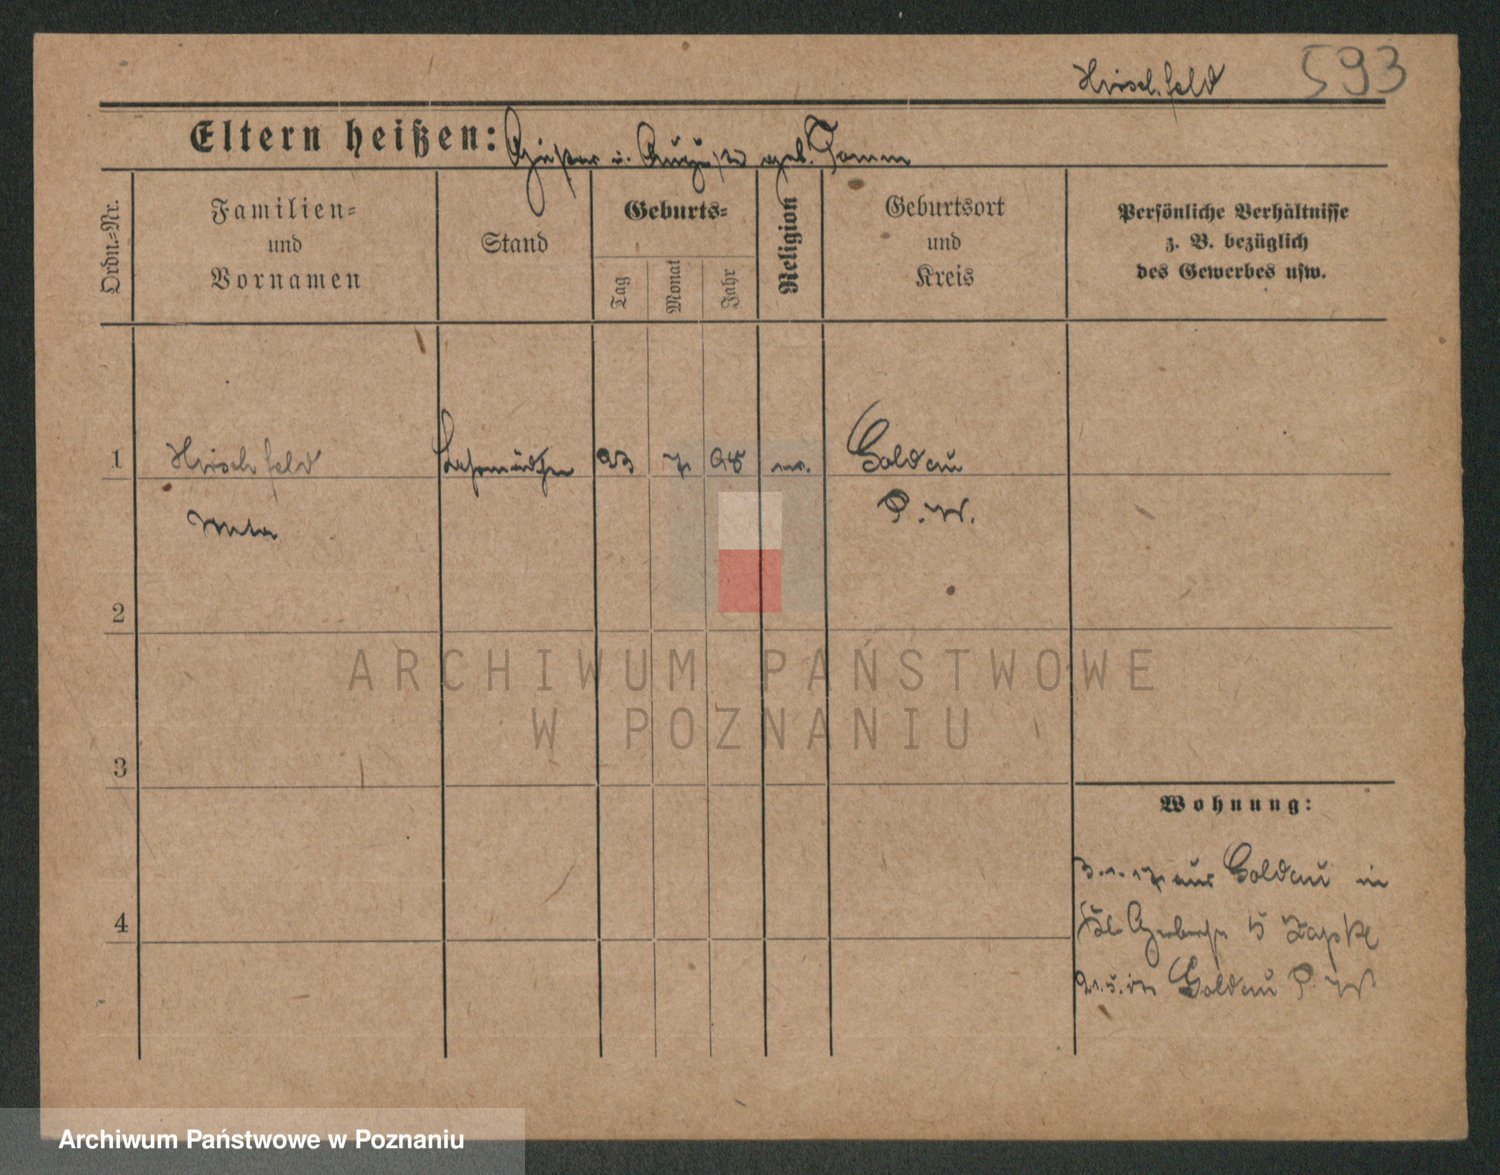 Hirschfeld 593
Eltern heißen: Gustav u. Auguste geb. Tamm
Ordn.-Nr.
Familien-
und
Vornamen
Stand
Geburts-
Tag
Monat
Jahr
Religion
Geburtsort
und
Kreis
Persönliche Verhältnisse
z. B. bezüglich
des Gewerbes usw.
1 Hirschfeld 23 7 98 Soldau
Meta P. W.
2
3
4
Wohnung:
aus Soldau in
b Zapke
in Soldau P. W
ARCHIWUM PAŃSTWOWE
W POZNANIU
Archiwum Państwowe w Poznaniu